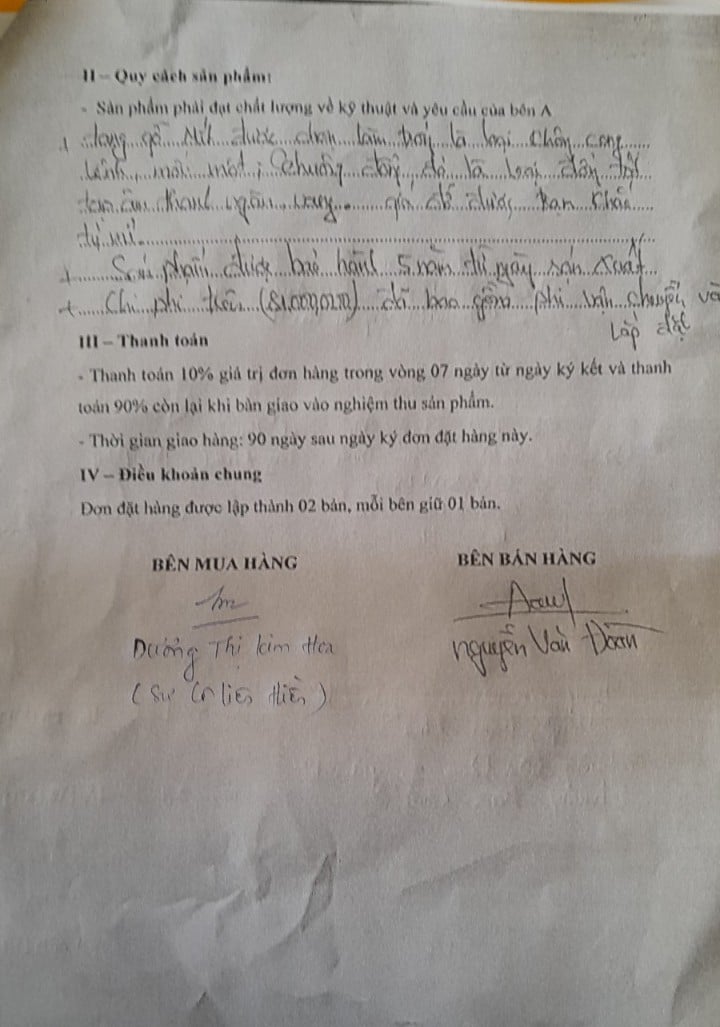 II – Quy cách sản phẩm:
- Sản phẩm phải đạt chất lượng về kỹ thuật và yêu cầu của bên A
+ dạng gỗ Mít được chọn làm trống là loại
mối mọt; Chuông đồng đỏ là loại đồng
âm thanh ngân vang giá đỡ được
tỷ mỉ
+ Sản phẩm được bảo hành 5 năm từ ngày sản xuất
+ Chi phí trên đã bao gồm phí vận chuyển và
Lắp đặt
III – Thanh toán
- Thanh toán 10% giá trị đơn hàng trong vòng 07 ngày từ ngày ký kết và thanh
toán 90% còn lại khi bàn giao vào nghiệm thu sản phẩm.
- Thời gian giao hàng: 90 ngày sau ngày ký đơn đặt hàng này.
IV – Điều khoản chung
Đơn đặt hàng được lập thành 02 bản, mỗi bên giữ 01 bản.
BÊN MUA HÀNG
BÊN BÁN HÀNG
Dương Thị Kim Hoa
Nguyễn Văn Đoàn
(Sư Cô Liên Hiền)